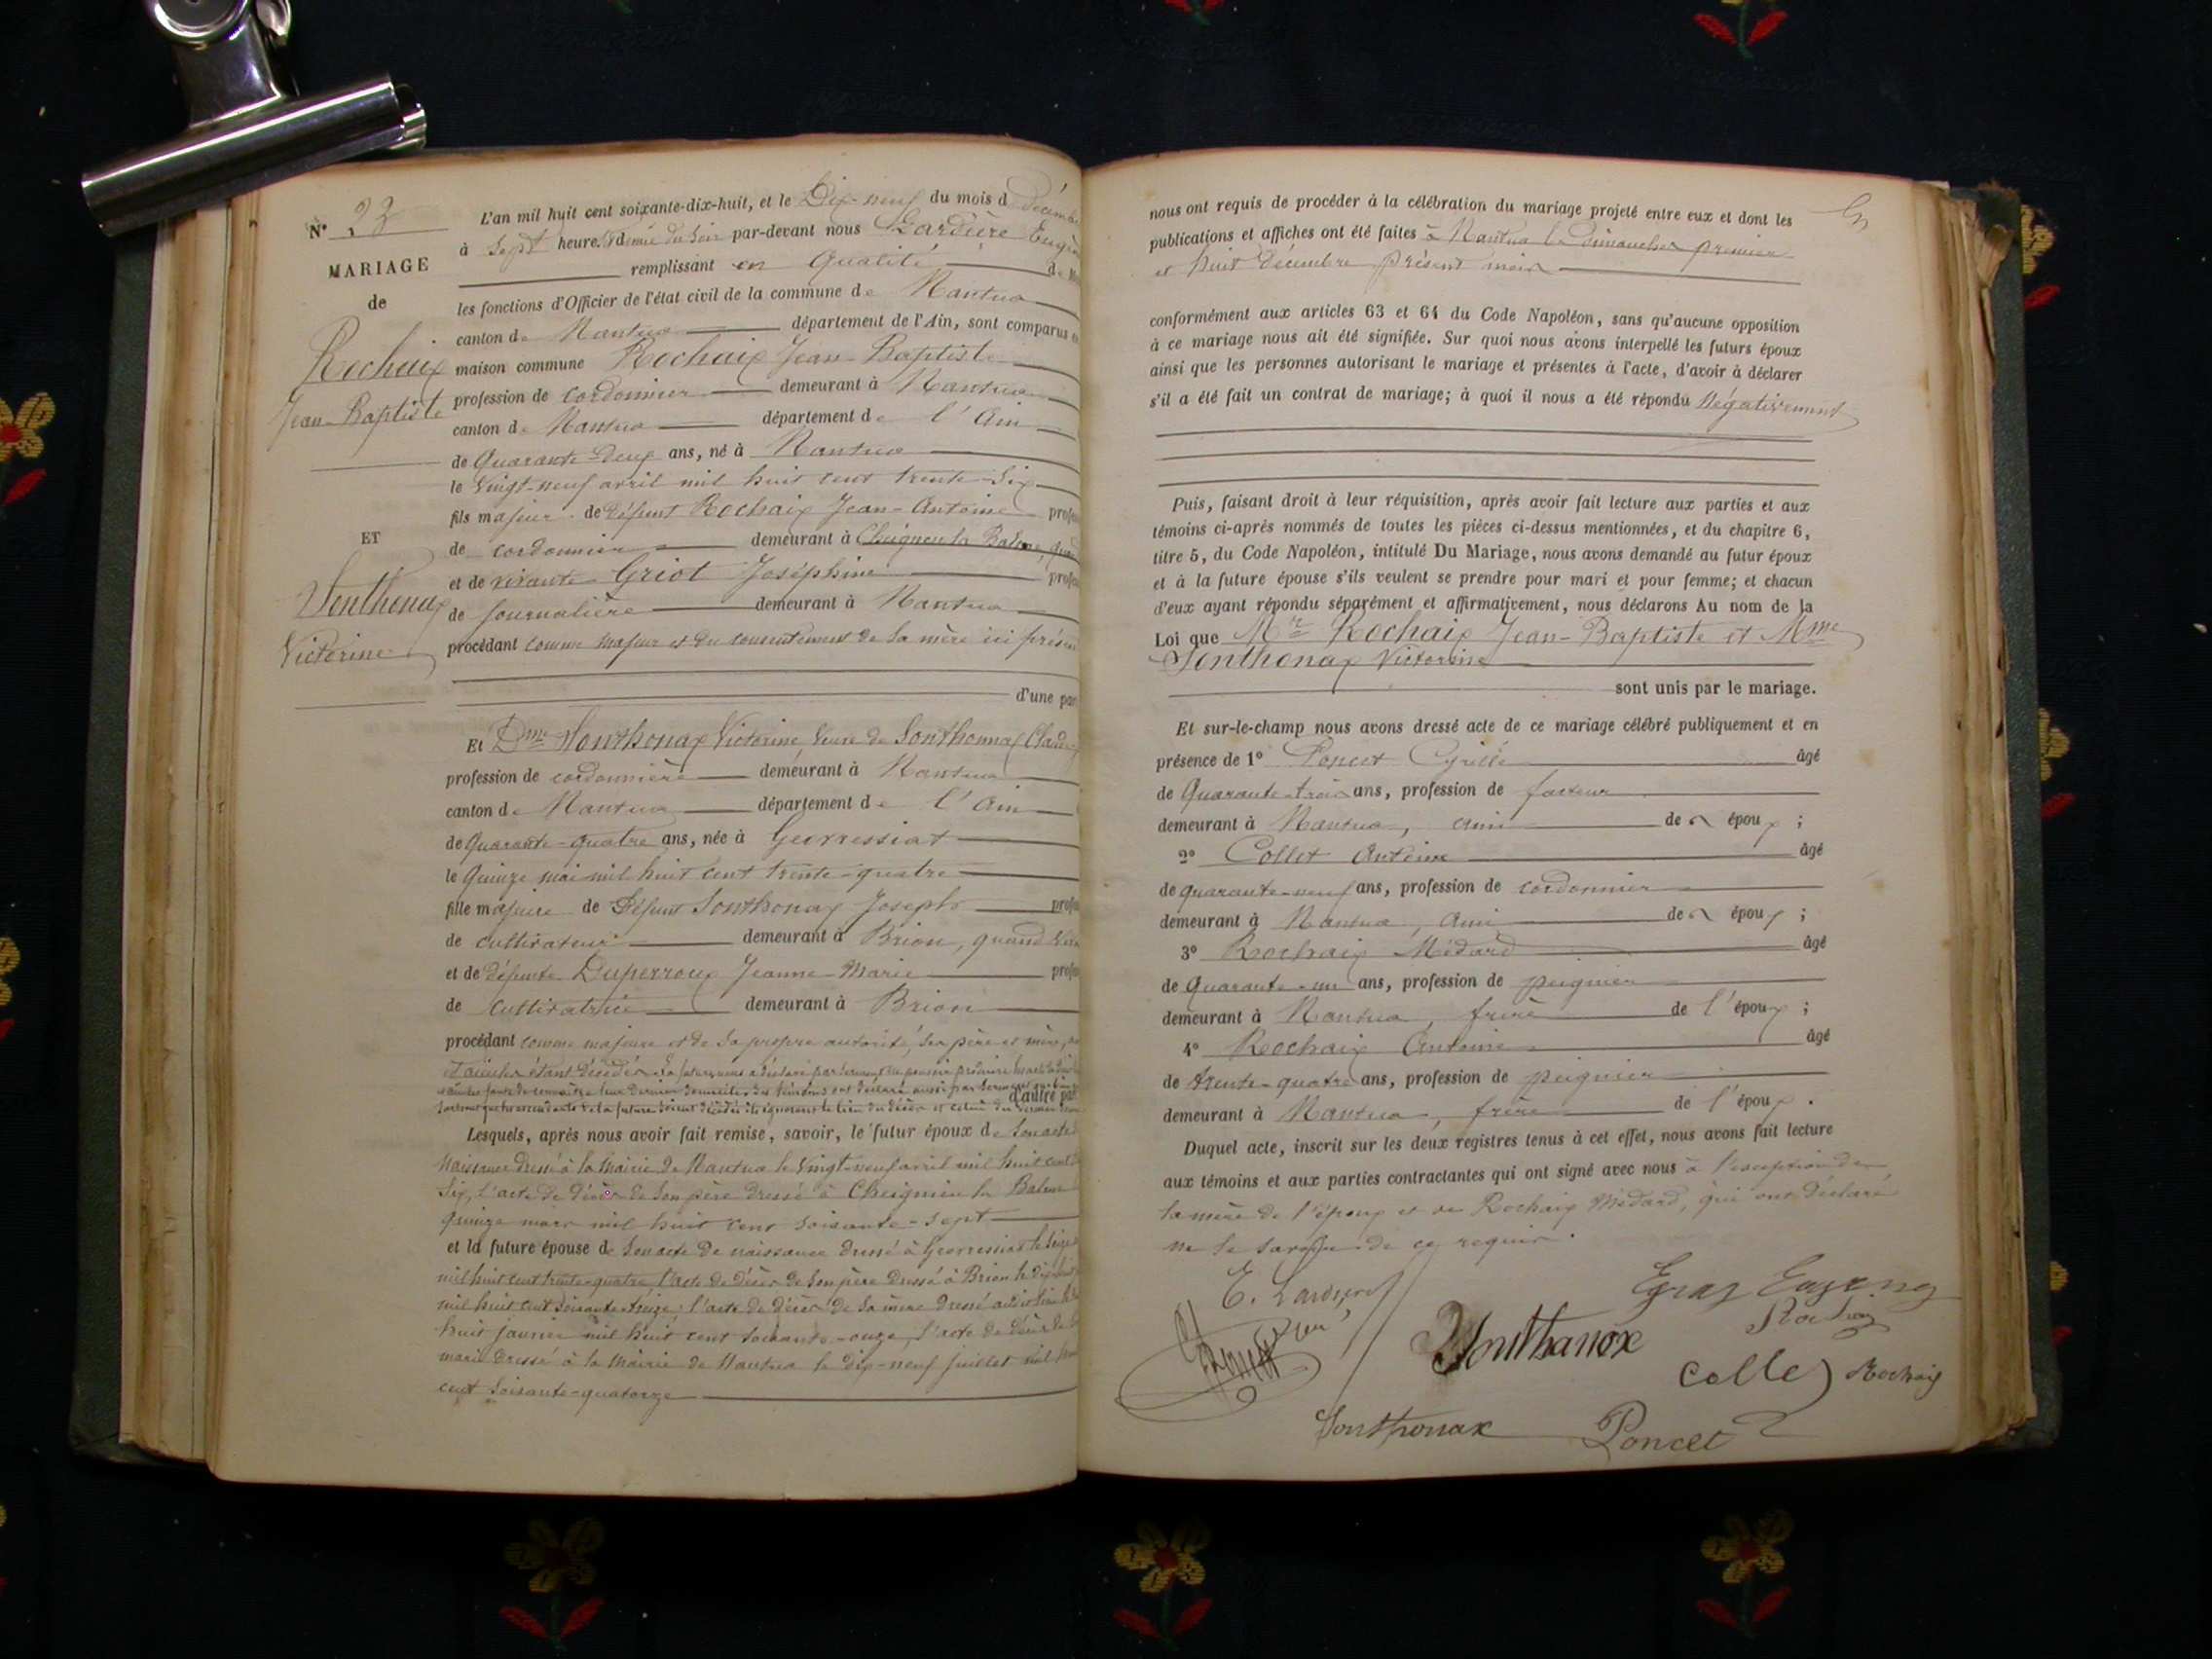 N° 23
MARIAGE
de
Rochaix
Jean-Baptiste
ET
Sonthonax
Victorine
L'an mil huit cent soixante-dix-huit, et le Dix-neuf du mois d décem
à Sept heure du Soir par-devant nous Lardière Eugèn
remplissant en Qualité de M
les fonctions d'Officier de l'état civil de la commune de Nantua
canton de Nantua département de l'Ain, sont comparus e
maison commune Rochaix Jean-Baptiste
profession de cordonnier demeurant à Nantua
canton de Nantua département de l'Ain
de Quarante-deux ans, né à Nantua
le Vingt-neuf avril mil huit cent trente-Six
fils majeur de défunt Rochaix Jean-Antoine profes
de cordonnier demeurant à Cheignieu la Balme, quand
et de vivante Griot Joséphine profes
de Journalière demeurant à Nantua
procédant comme majeur et du consentement de Sa mère ici présen
d'une par
Et Dme Sonthonax Victorine, Veuve de Sonthonnax Claude
profession de cordonnière demeurant à Nantua
canton de Nantua département de l'Ain
de Quarante-quatre ans, née à Geovressiat
le Quinze mai mil huit cent trente-quatre
fille majeure de Défunt Sonthonax Joseph profes
de cultivateur demeurant à Brion, quand Viv
et de défunte Duperroux Jeanne-Marie profes
de cultivatrice demeurant à Brion
procédant comme majeure et de Sa propre autorité, Ses père et mère,
et aïeuls étant décédés
d'autre par
Lesquels, après nous avoir fait remise, savoir, le futur époux de Son acte
Naissance dressé à la Mairie de Nantua le Vingt-neuf avril mil huit cent
Six, l'acte de décès de Son père dressé à Cheignieu la Balme
Quinze mars mil huit cent soixante-sept
et la future épouse de Son acte de naissance dressé à Geovressiat le Seize
mil huit cent trente-quatre, l'acte de décès de Son père dressé à Brion le dix
mil huit cent soixante treize; l'acte de décès de Sa mère dressé audit lieu le
huit janvier mil huit cent soixante-onze, l'acte de décès de
mari dressé à la Mairie de Nantua le dix-neuf juillet mil
cent Soixante-quatorze
nous ont requis de procéder à la célébration du mariage projeté entre eux et dont les
publications et affiches ont été faites à Nantua les Dimanches premier
et huit Décembre présent mois
conformément aux articles 63 et 64 du Code Napoléon, sans qu'aucune opposition
à ce mariage nous ait été signifiée. Sur quoi nous avons interpellé les futurs époux
ainsi que les personnes autorisant le mariage et présentes à l'acte, d'avoir à déclarer
s'il a été fait un contrat de mariage; à quoi il nous a été répondu Négativement
Puis, faisant droit à leur réquisition, après avoir fait lecture aux parties et aux
témoins ci-après nommés de toutes les pièces ci-dessus mentionnées, et du chapitre 6,
titre 5, du Code Napoléon, intitulé Du Mariage, nous avons demandé au futur époux
et à la future épouse s'ils veulent se prendre pour mari et pour femme; et chacun
d'eux ayant répondu séparément et affirmativement, nous déclarons Au nom de la
Loi que Mr Rochaix Jean-Baptiste et Mme
Sonthonax Victorine
sont unis par le mariage.
Et sur-le-champ nous avons dressé acte de ce mariage célébré publiquement et en
présence de 1° Poncet Cyrille âgé
de Quarante-trois ans, profession de facteur
demeurant à Nantua, ami de époux;
2° Collet Antoine âgé
de quarante-neuf ans, profession de cordonnier
demeurant à Nantua, ami de époux;
3° Rochaix Médard âgé
de Quarante-un ans, profession de peignier
demeurant à Nantua, frère de l'époux;
4° Rochaix Antoine âgé
de trente-quatre ans, profession de peignier
demeurant à Nantua, frère de l'époux.
Duquel acte, inscrit sur les deux registres tenus à cet effet, nous avons fait lecture
aux témoins et aux parties contractantes qui ont signé avec nous à l'exception de
la mère de l'époux et de Rochaix Médard, qui ont déclaré
ne le savoir de ce requis.
E. Lardière
Sonthanox
Colle Rochaix
Sonthonax Poncet